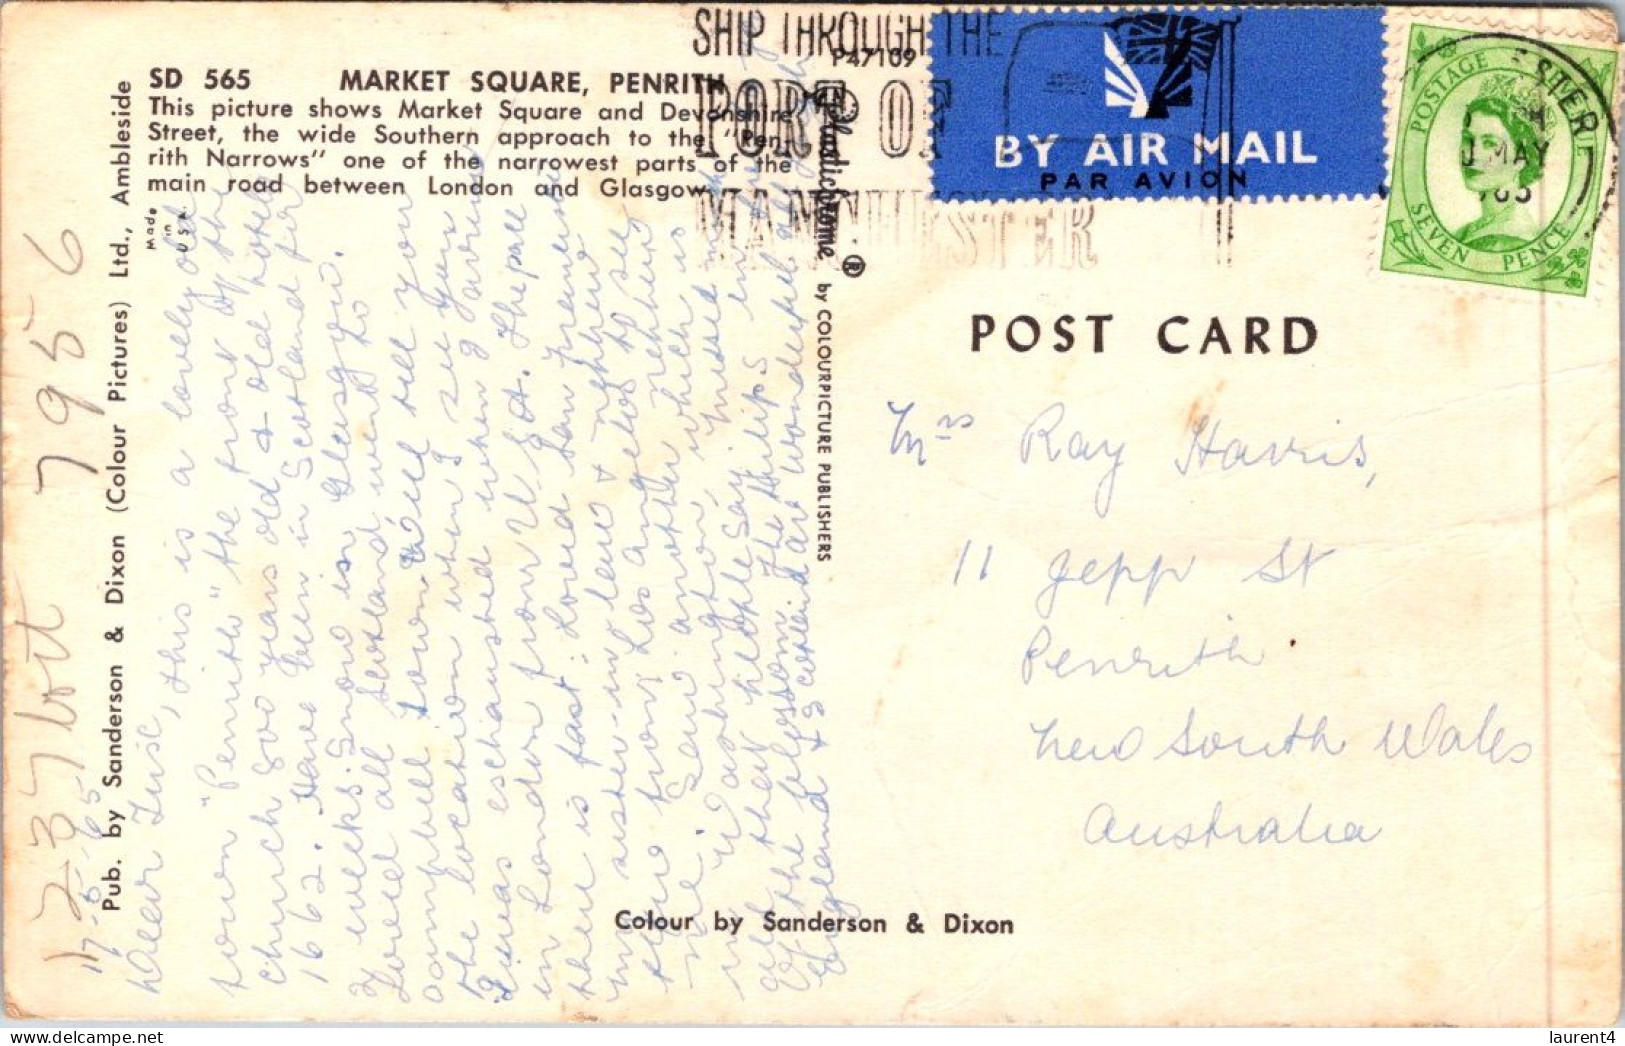 SD 565 MARKET SQUARE, PENRITH
This picture shows Market Square and Devonshire
Street, the wide Southern approach to the "Pen-
rith Narrows" one of the narrowest parts of the
main road between London and Glasgow.
Made
in
U.S.A.
Pub. by Sanderson & Dixon (Colour Pictures) Ltd., Ambleside
P47109
Plastichrome ®
by COLOURPICTURE PUBLISHERS
SHIP THROUGH THE
PORT OF
MANCHESTER
BY AIR MAIL
PAR AVION
POSTAGE
SEVEN PENCE
MAY
POST CARD
Mrs Ray Harris,
11 Jepp St
Penrith
New South Wales
Australia
Colour by Sanderson & Dixon
17-5-65
Dear this is a lovely old
town "Penrith" the front of the
church 800 years old & old hotels
1662. Have been in Scotland for
weeks. Snow in Glasgow.
Loved all Scotland went to
Campbell Town will tell you
the location when I see you
was exchausted when I arrived
in London from U S A. The pall
there is fast. Loved San
my sister-in law & nephew
flew from Los angelos to see
me. Saw another nephew
in Washington, which is
England & Scotland are wonderful
795 6
laurent4